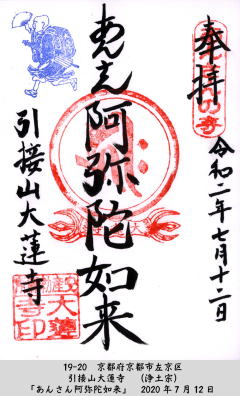 奉拝
令和二年七月十二日
あんさん阿弥陀如来
引接山大蓮寺
19-20 京都府京都市左京区
引接山大蓮寺 (浄土宗)
「あんさん阿弥陀如来」 2020年7月12日